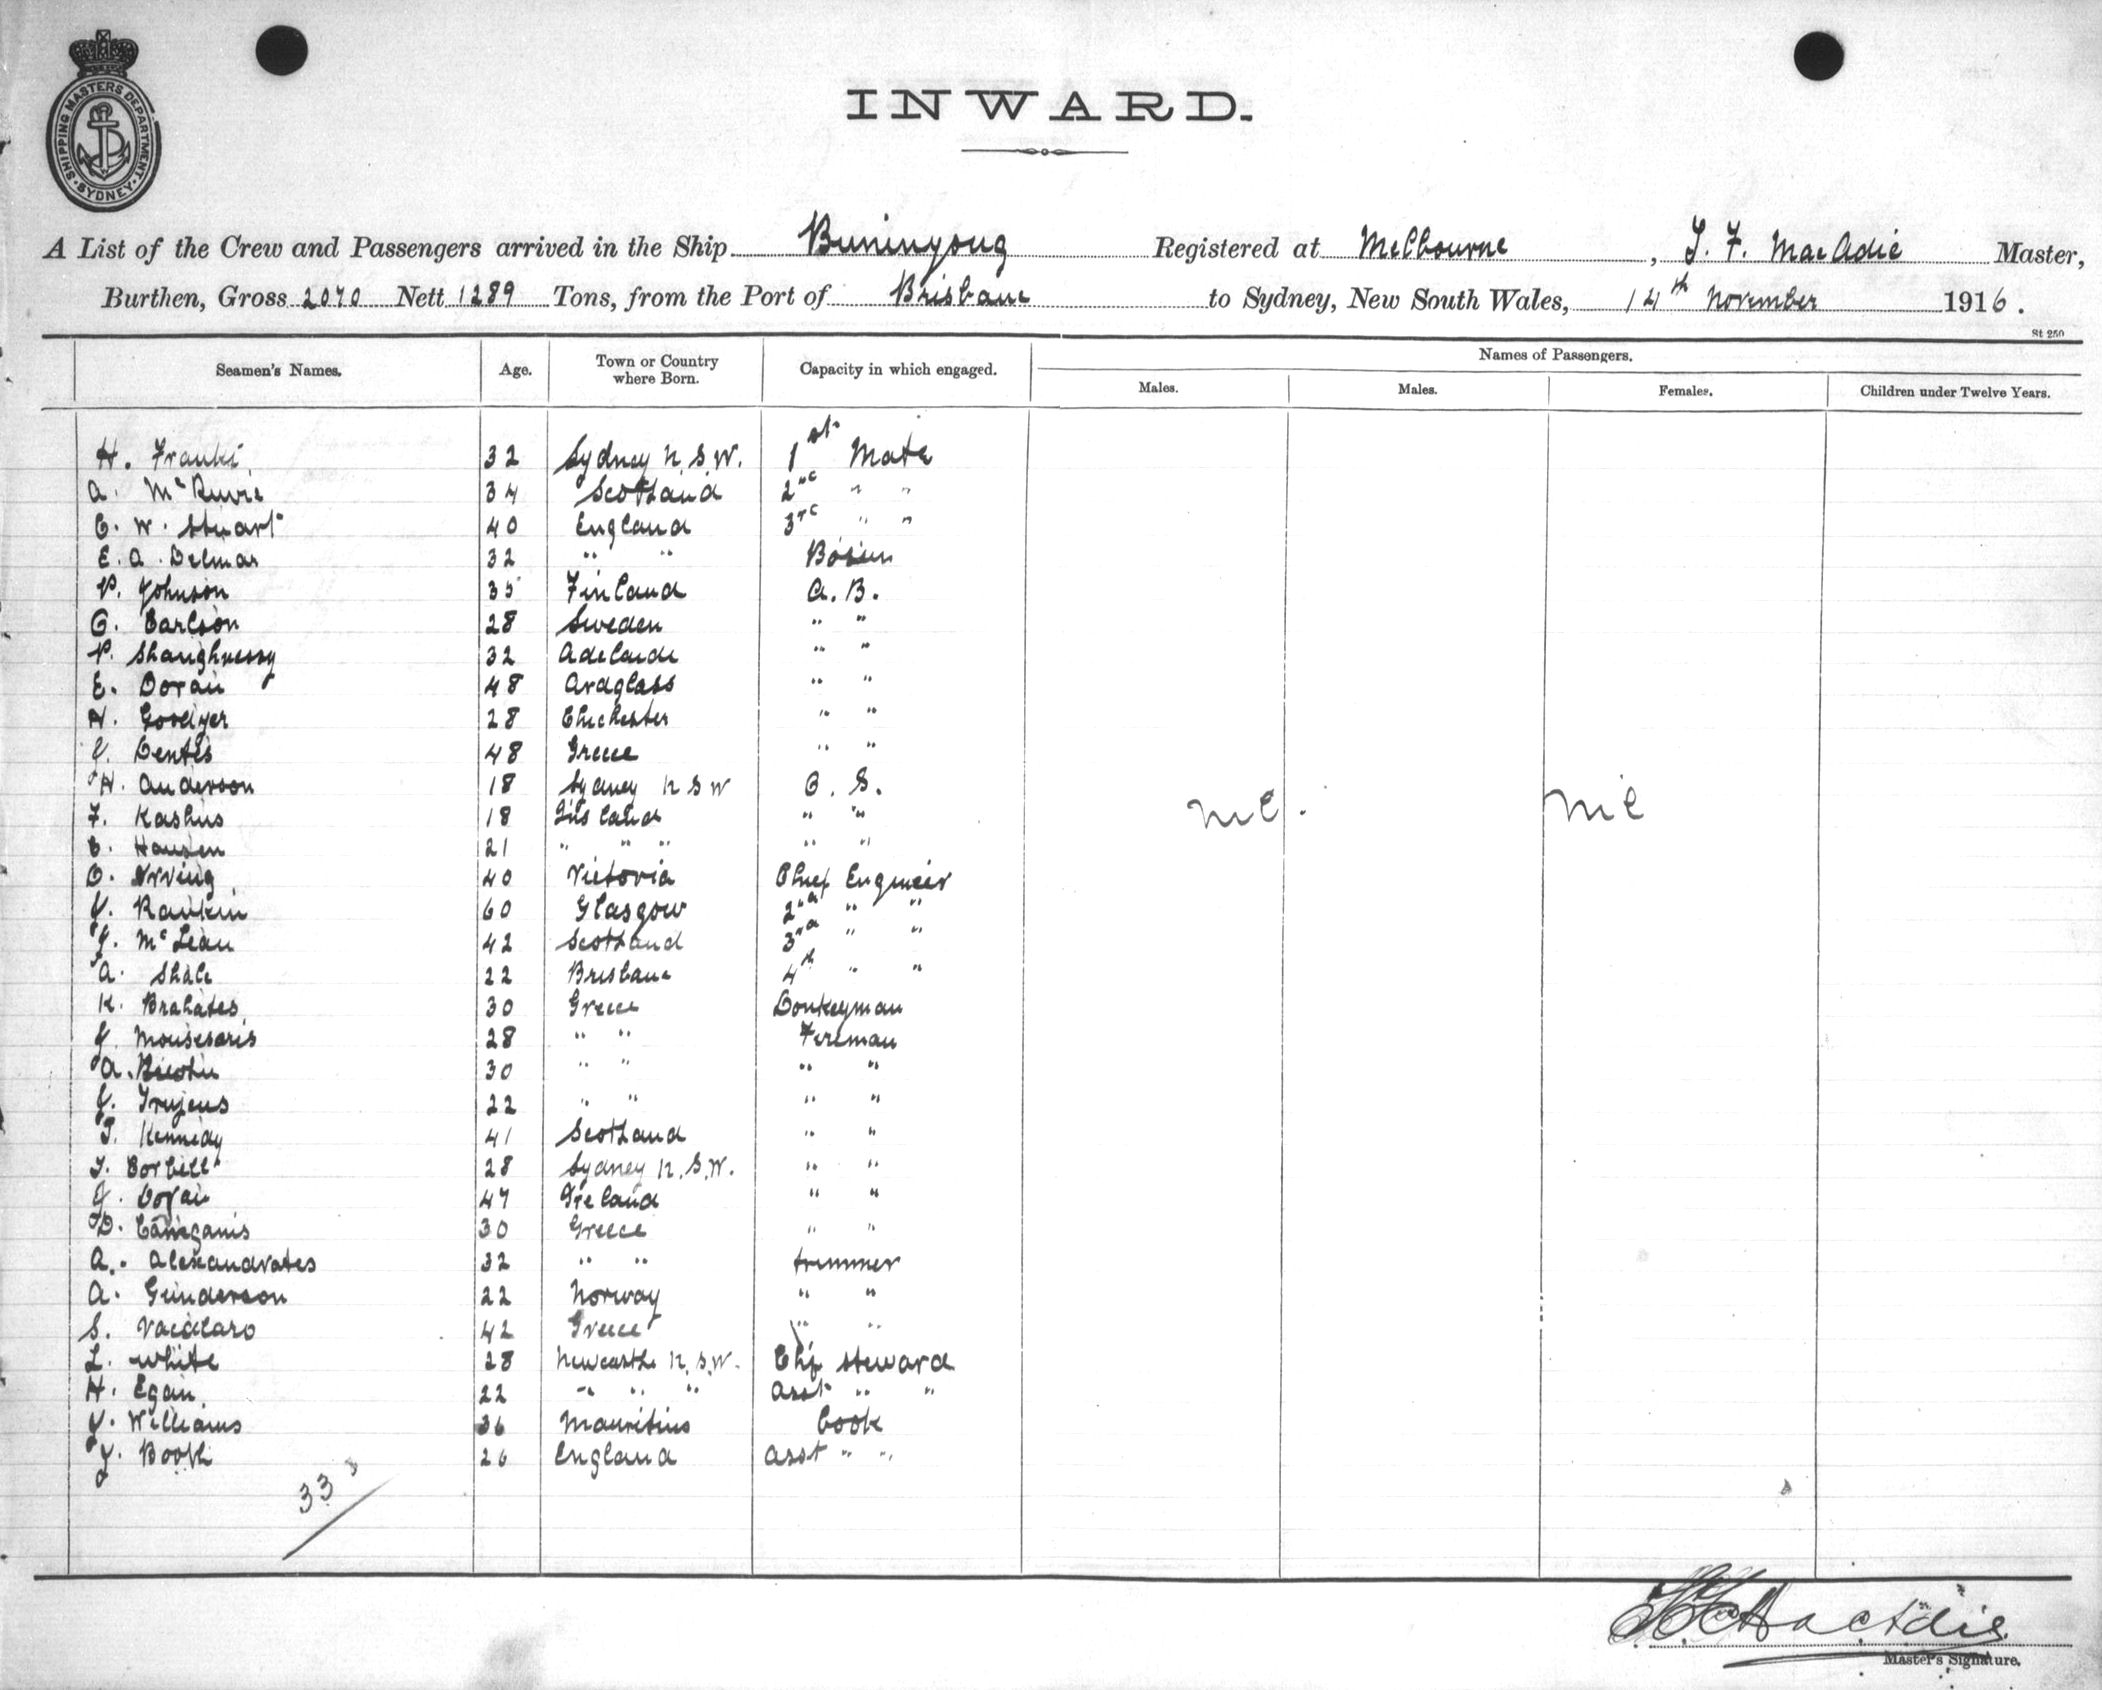 SHIPPING MASTERS DEPARTMENT. SYDNEY
INWARD.
A List of the Crew and Passengers arrived in the Ship Buninyong Registered at Melbourne, T. F. MacAdie Master,
Burthen, Gross 2070 Nett 1289 Tons, from the Port of Brisbane to Sydney, New South Wales, 14th November 1916.
St 250
Seamen's Names. Age. Town or Country where Born. Capacity in which engaged. Names of Passengers.
Males. Males. Females. Children under Twelve Years.
H. Franki 32 Sydney N.S.W. 1st Mate
A. 34 Scotland 2nd " "
C. W. Stuart 40 England 3rd " "
E. A. Delmar 32 " " Bosun
P. Johnson 35 Finland A.B.
G. Carlson 28 Sweden " "
P. Shaughnessy 32 Adelaide " "
E. Doran 48 Ardglass " "
H. Goodyer 28 Chichester " "
J. 48 Greece " "
H. Anderson 18 Sydney N S W O.S.
F. 18 " "
C. Hansen 21 " " " " "
Nil. Nil
Irving 40 Victoria Chief Engineer
J. Rankin 60 Glasgow 2nd " "
J. McLean 42 Scotland 3rd " "
A. 22 Brisbane 4th " "
K. 30 Greece Donkeyman
J. 28 " " Fireman
A. 30 " " " "
J. 22 " " " "
T. Kennedy 41 Scotland " "
T. Corbell 28 Sydney N.S.W. " "
J. Doran 47 Ireland " "
D. 30 Greece " "
A. Alexandrates 32 " " trimmer
A. Gunderson 22 Norway " "
S. 42 Greece " "
L. White 28 Newcastle N.S.W. Chf steward
H. Egan. 22 " " " asst " "
J. Williams 36 Mauritius Cook
J. Booth 26 England asst " "
33
Master's Signature.